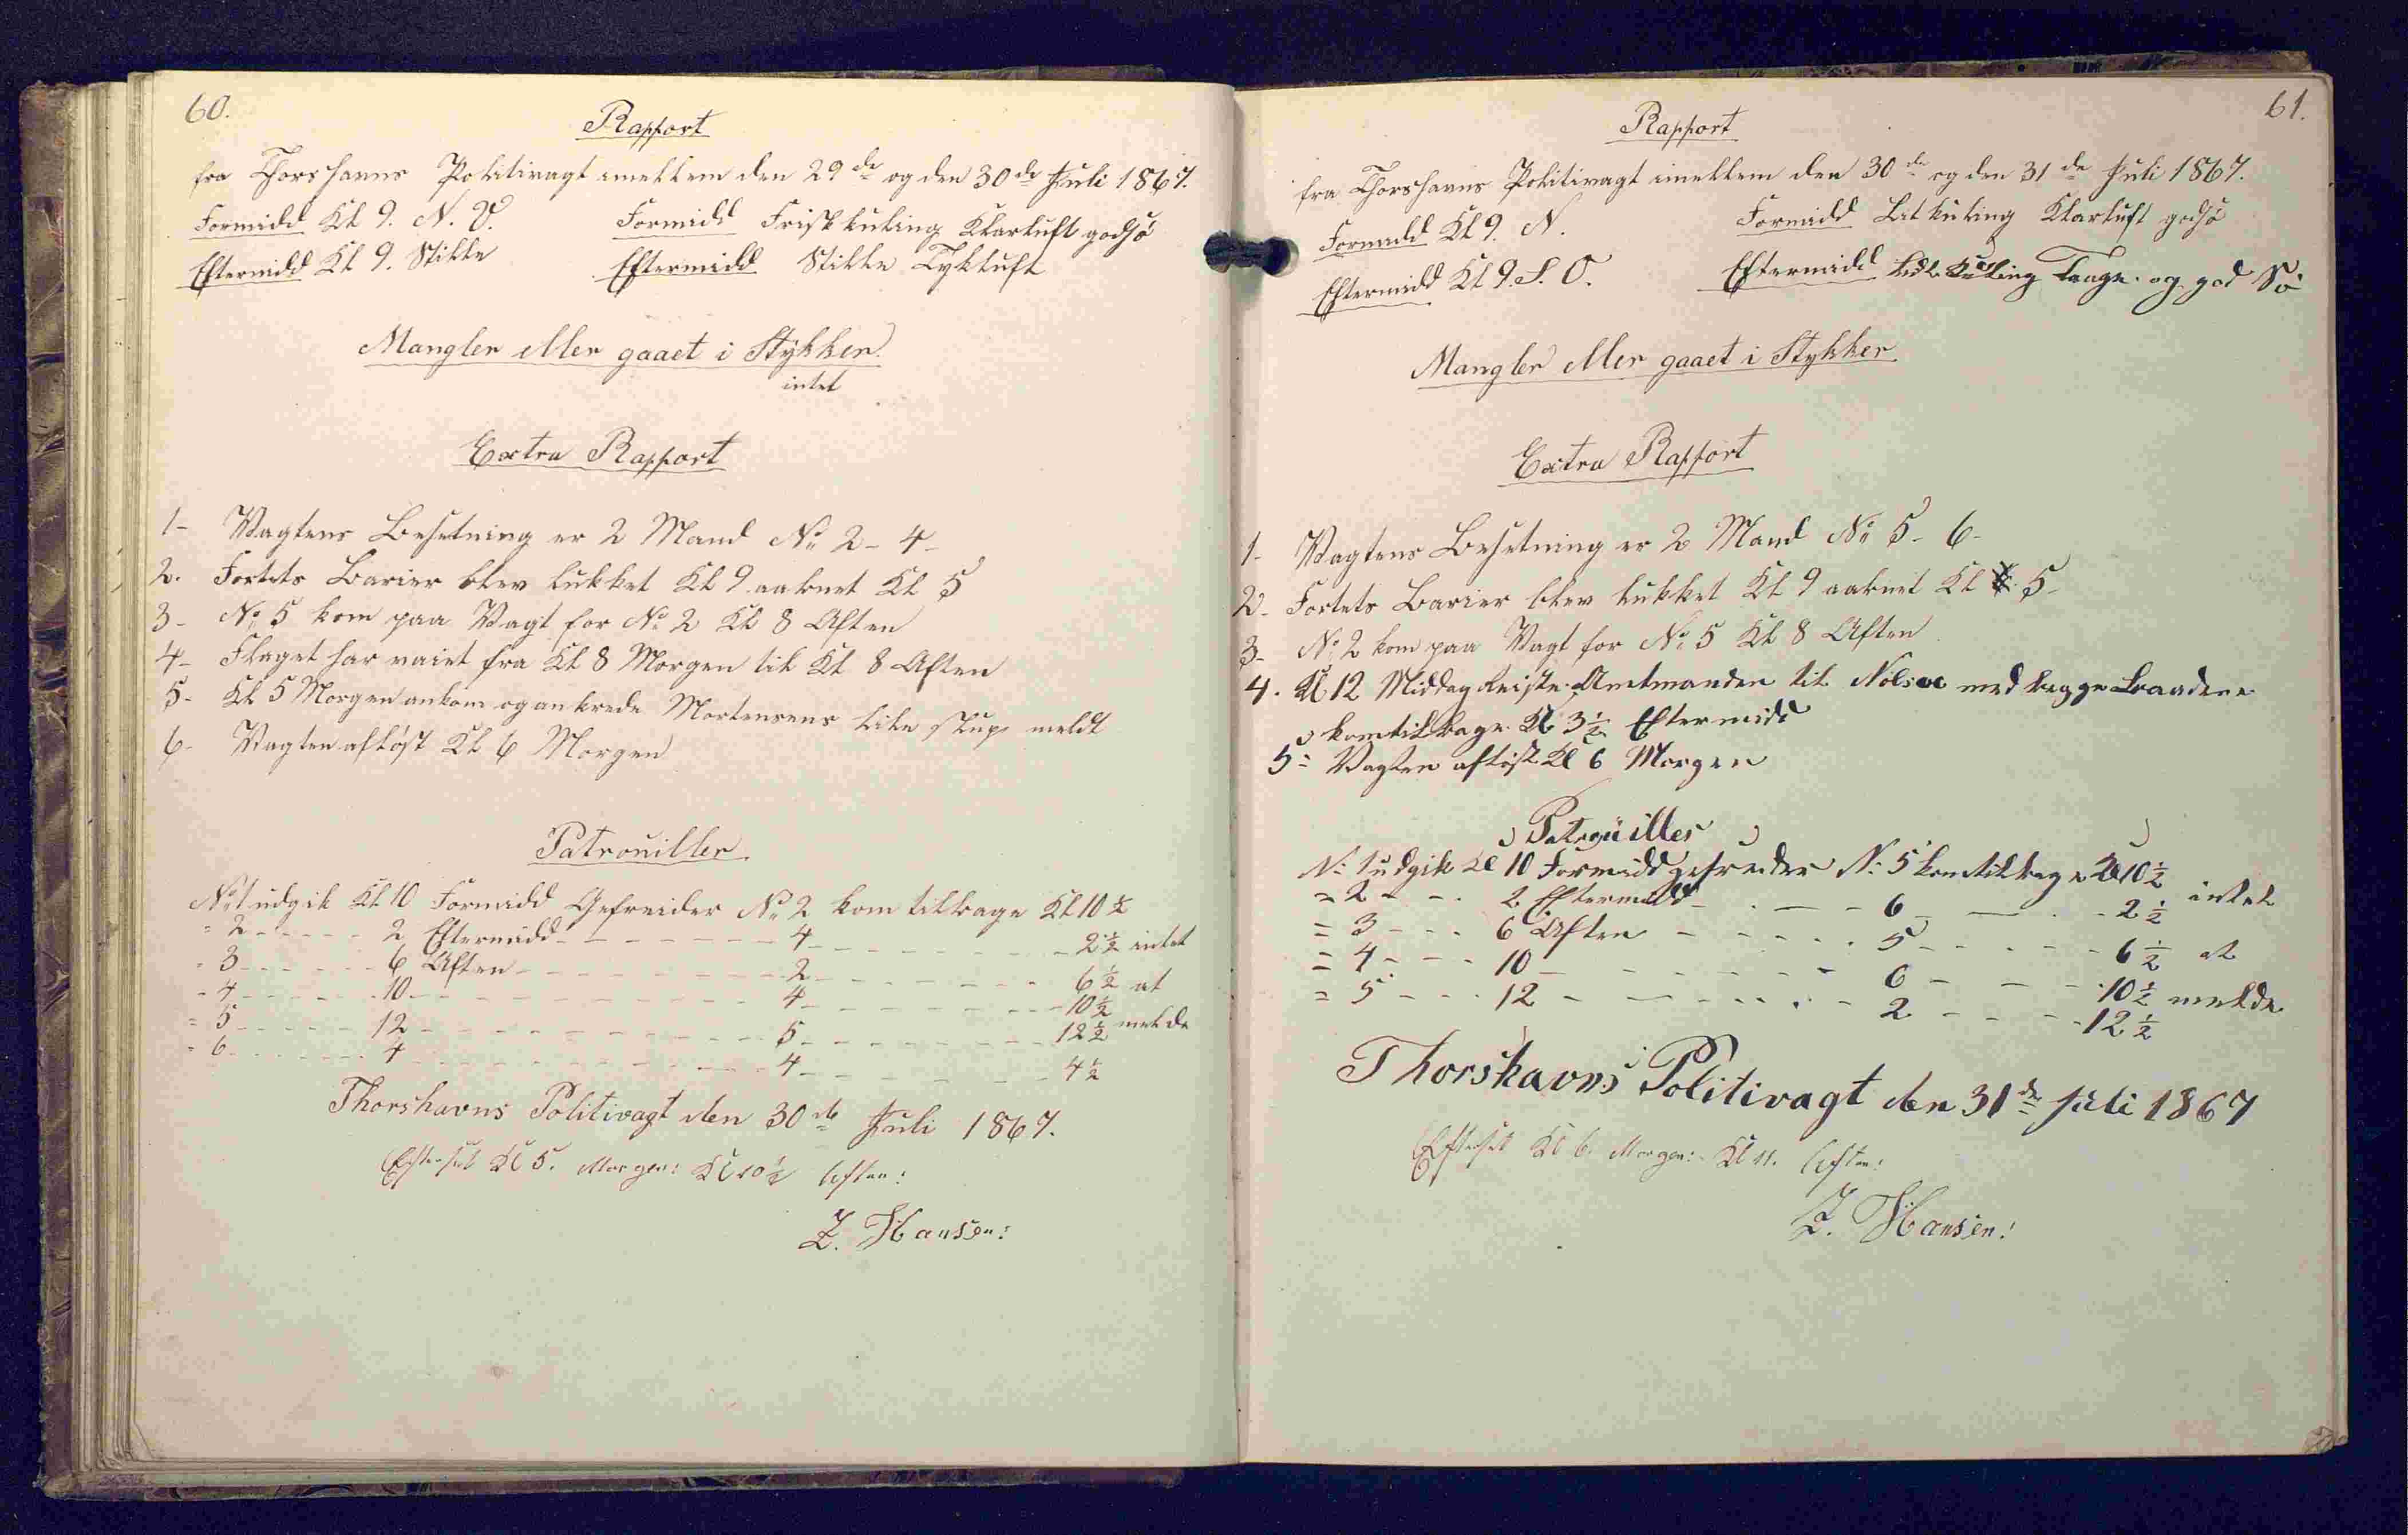 60.
Rapport
fra Thorshavns Politivagt imellem den 29de og den 30de Juli 1867.
Formidd Kl 9. N. V. Formidd Frisk kuling Klarluft godsö
Eftermidd Kl 9. Stille Eftermidd Stille Tykluft
Mangler eller gaaet i Stykker.
intet
Extra Rapport
1- Vagtens Besetning er 2 Mand No 2- 4-
2. Fortets Barier blev lukket Kl 9 aabnet Kl 5
3- No 5 kom paa Vagt for No 2 Kl 8 Aften
4- Flaget har vaiet fra Kl 8 Morgen til Kl 8 Aften
5- Kl 5 Morgen ankom og ankrede Mortensens lille slup meldt
6- Vagten aflöst Kl 6 Morgen
Patrouiller
No 1 udgik Kl 10 Formidd Gefreider No 2 kom tilbage Kl 10 ½
" 2 - - - - - 2 Eftermidd - - - - - - - 4 - - - - - - - - 2 ½ intet
" 3 - - - - - 6 Aften - - - - - - - - 2 - - - - - - - 6 ½ at
" 4 - - - - - 10 - - - - - - - - - - 4 - - - - - - - 10 ½
" 5 - - - - - 12 - - - - - - - - - - 5 - - - - - - - 12 ½ melde
" 6 - - - - - 4 - - - - - - - - - - 4 - - - - - - - 4 ½
Thorshavns Politivagt den 30de Juli 1867.
Efterset Kl 5. Morgen: Kl 10 ½ Aften:
Z. Hansen:
61.
Rapport
fra Thorshavns Politivagt imellem den 30de og den 31de Juli 1867.
Formidd Kl 9. N. Formidd Let kuling Klarluft godsö
Eftermidd Kl 9. S. O. Eftermidd kuling Taage og god Sö
Mangler eller gaaet i Stykker.
Extra Rapport
1- Vagtens Besetning er 2 Mand No 5- 6-
2- Fortets Barier blev lukket Kl 9 aabnet Kl 5-
3- No 2 kom paa Vagt for No 5 Kl 8 Aften
4. Kl 12 Middag Reiste Amtmanden til Nolsoe med begge Baadene
kom tilbage Kl 3 ½ Eftermidd
5: Vagten aflöst Kl 6 Morgen
Patrouiller
No 1 udgik Kl 10 Formidd gefreider No 5 kom tilbage Kl 10 ½
= 2 - - - 2 Eftermidd - - - - 6 - - - - 2 ½ intet
= 3 - - - 6 Aften - - - - - 5 - - - - - 6 ½ at
= 4 - - - 10 - - - - - - 6 - - - - 10 ½ melde
= 5 - - - 12 - - - - - - 2 - - - - 12 ½
Thorshavns Politivagt den 31de Juli 1867
Efterset Kl 6. Morgen: Kl 11. Aften:
Z. Hansen: